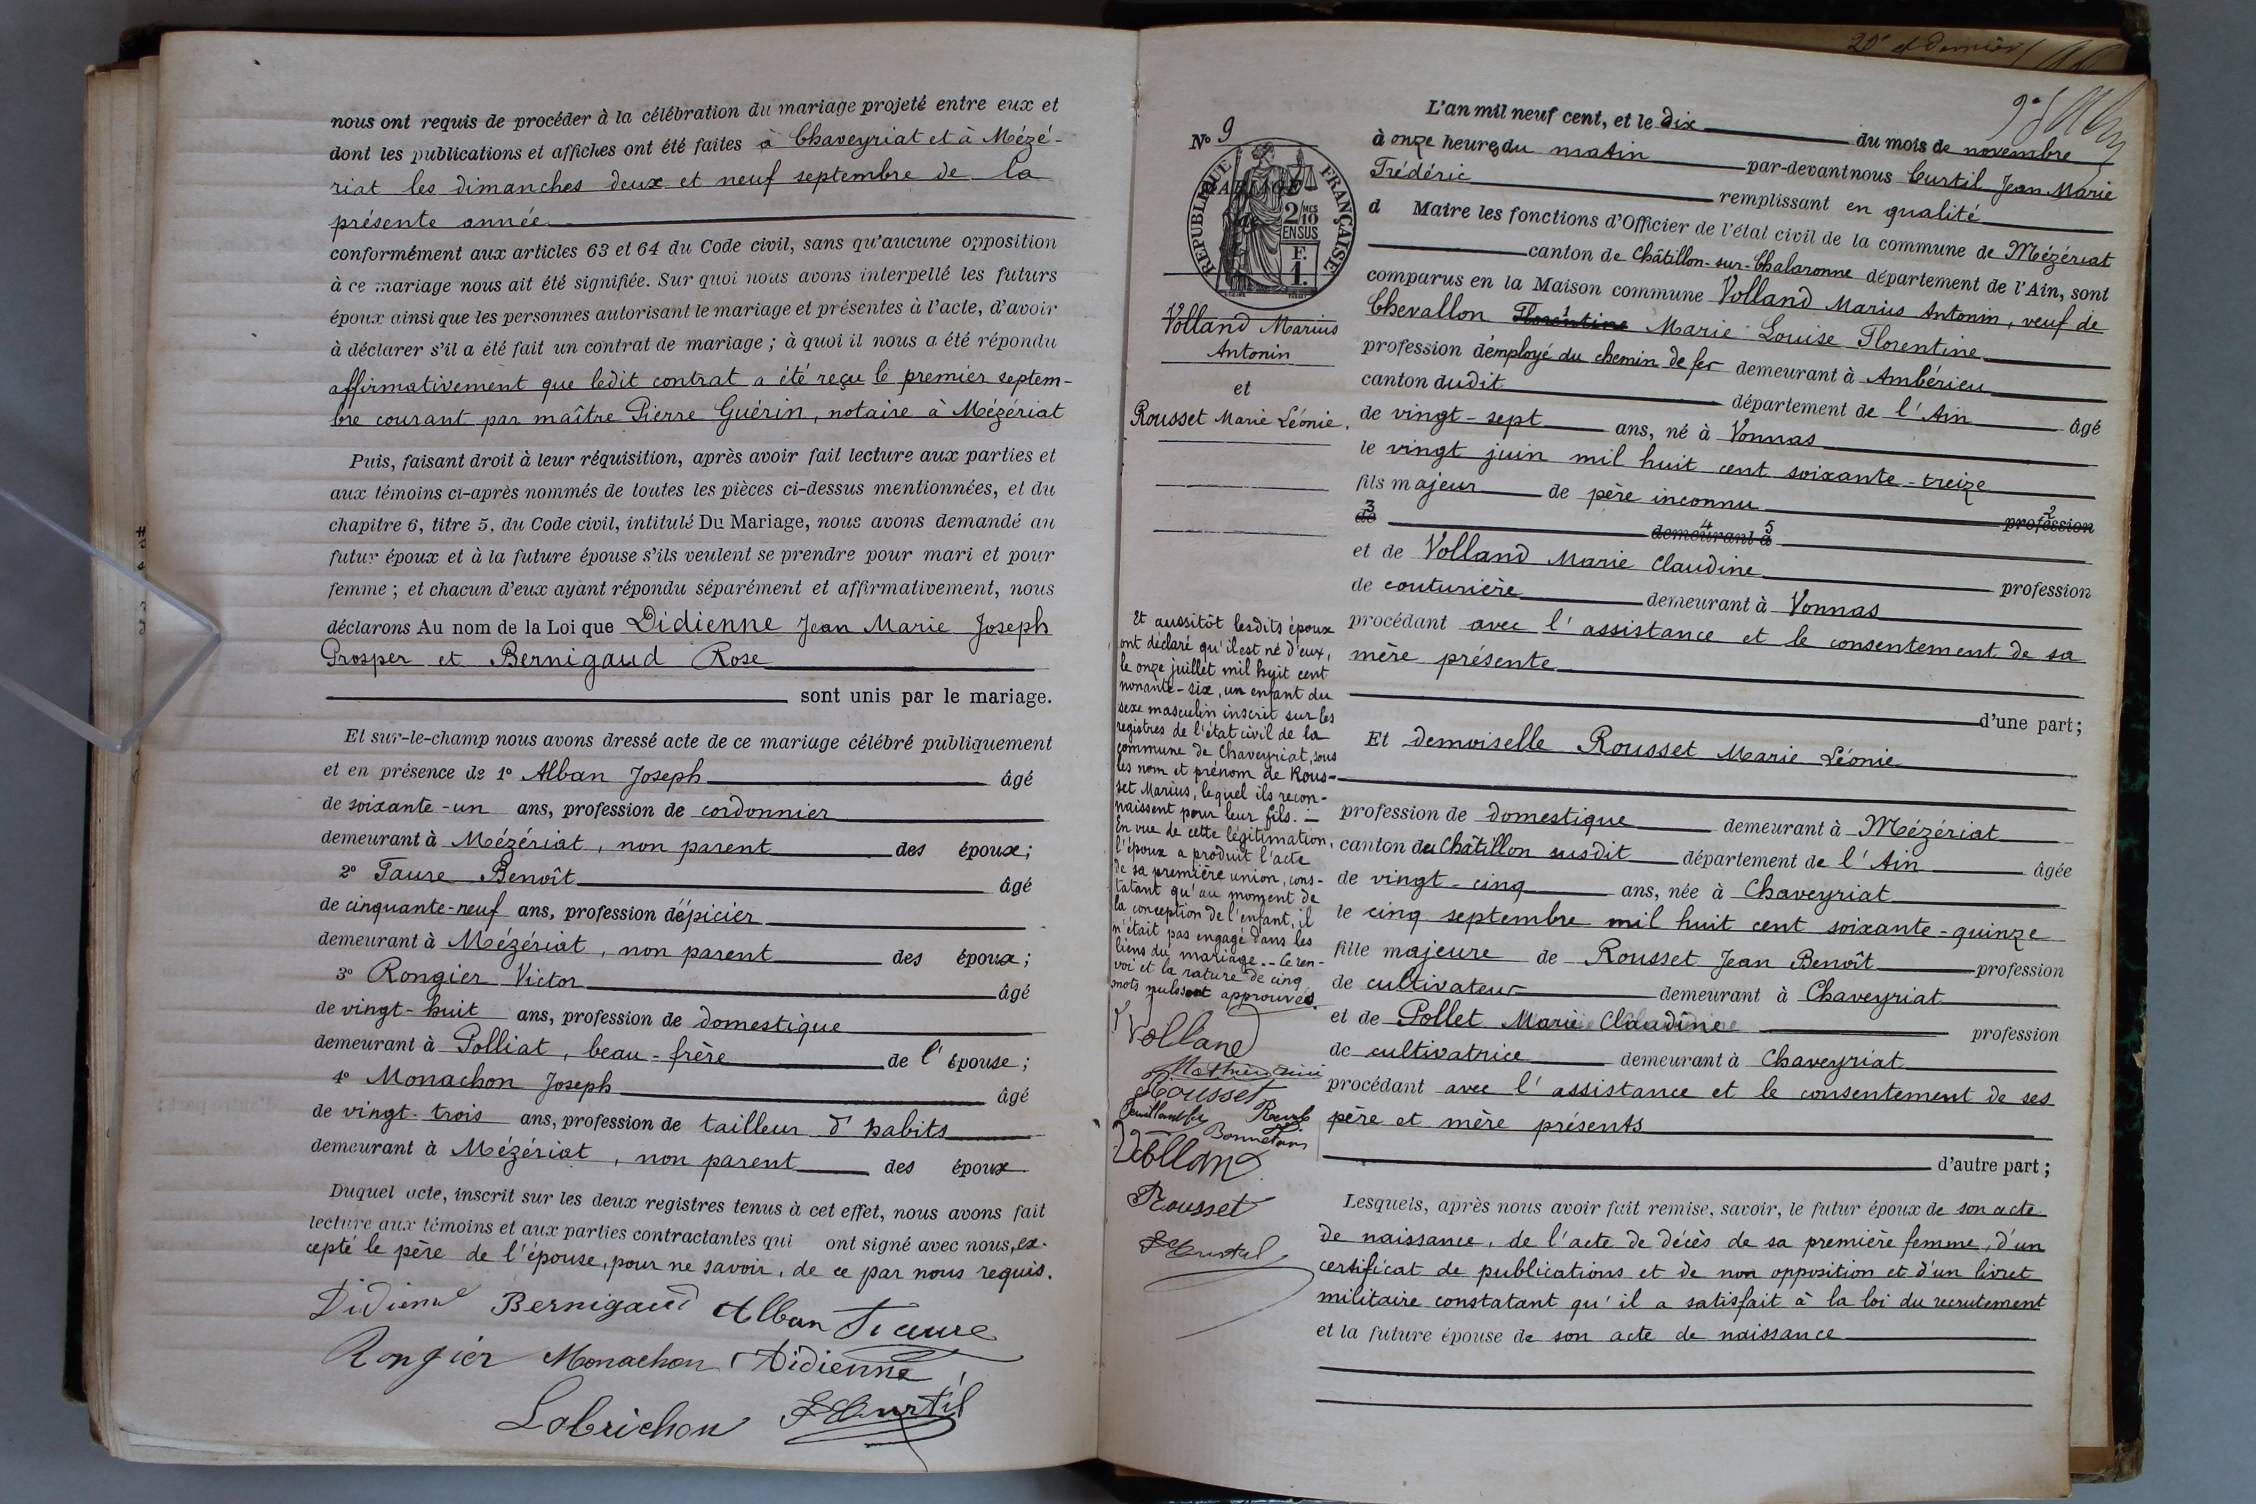 nous ont requis de procéder à la célébration du mariage projeté entre eux et
dont les publications et affiches ont été faites à Chaveyriat et à Mézé-
riat les dimanches deux et neuf septembre de la
présente année
conformément aux articles 63 et 64 du Code civil, sans qu'aucune opposition
à ce mariage nous ait été signifiée. Sur quoi nous avons interpellé les futurs
époux ainsi que les personnes autorisant le mariage et présentes à l'acte, d'avoir
à déclarer s'il a été fait un contrat de mariage ; à quoi il nous a été répondu
affirmativement que ledit contrat a été reçu le premier septem-
bre courant par maître Pierre Guérin, notaire à Mézériat
Puis, faisant droit à leur réquisition, après avoir fait lecture aux parties et
aux témoins ci-après nommés de toutes les pièces ci-dessus mentionnées, et du
chapitre 6, titre 5, du Code civil, intitulé Du Mariage, nous avons demandé au
futur époux et à la future épouse s'ils veulent se prendre pour mari et pour
femme ; et chacun d'eux ayant répondu séparément et affirmativement, nous
déclarons Au nom de la Loi que Didienne Jean Marie Joseph
Prosper et Bernigaud Rose
sont unis par le mariage.
Et sur-le-champ nous avons dressé acte de ce mariage célébré publiquement
et en présence de 1º Alban Joseph âgé
de soixante-un ans, profession de cordonnier
demeurant à Mézériat, non parent des époux;
2º Faure Benoît âgé
de cinquante-neuf ans, profession d'épicier
demeurant à Mézériat, non parent des époux;
3º Rongier Victor âgé
de vingt-huit ans, profession de domestique
demeurant à Polliat, beau-frère de l'épouse;
4º Monachon Joseph âgé
de vingt-trois ans, profession de tailleur d'habits
demeurant à Mézériat, non parent des époux
Duquel acte, inscrit sur les deux registres tenus à cet effet, nous avons fait
lecture aux témoins et aux parties contractantes qui ont signé avec nous, ex-
cepté le père de l'épouse, pour ne savoir, de ce par nous requis.
Didienne Bernigaud Alban Faure
Rongier Monachon Didienne
Lobrichon Curtil
20e et dernier
9e
Nº 9
MARIAGE
de
REPUBLIQUE FRANÇAISE
2/10 MES
EN SUS
F.
1.
Volland Marius
Antonin
et
Rousset Marie Léonie.
Et aussitôt lesdits époux
ont déclaré qu'il est né d'eux,
le onze juillet mil huit cent
nonante-six, un enfant du
sexe masculin inscrit sur les
registres de l'état civil de la
commune de Chaveyriat, sous
les nom et prénom de Rous-
set Marius, lequel ils recon-
naissent pour leur fils. —
En vue de cette légitimation,
l'époux a produit l'acte
de sa première union, cons-
tatant qu'au moment de
la conception de l'enfant, il
n'était pas engagé dans les
liens du mariage. - Ce ren-
voi et la rature de cinq
mots nuls sont approuvés.
Volland
Rousset
Bonnetain
Volland
Rousset
Curtil
L'an mil neuf cent, et le dix du mois de novembre
à onze heures du matin par-devant nous Curtil Jean Marie
Frédéric remplissant en qualité
d Maire les fonctions d'Officier de l'état civil de la commune de Mézériat
canton de Châtillon-sur-Chalaronne département de l'Ain, sont
comparus en la Maison commune Volland Marius Antonin, veuf de
Chevallon Florentine 1 Marie Louise Florentine
profession d'employé du chemin de fer demeurant à Ambérieu
canton dudit département de l'Ain âgé
de vingt-sept ans, né à Vonnas
le vingt juin mil huit cent soixante-treize
fils majeur de père inconnu profession 2
de 3 demeurant 4 à 5
et de Volland Marie Claudine profession
de couturière demeurant à Vonnas
procédant avec l'assistance et le consentement de sa
mère présente
d'une part;
Et demoiselle Rousset Marie Léonie
profession de domestique demeurant à Mézériat
canton de Châtillon susdit département de l'Ain âgée
de vingt-cinq ans, née à Chaveyriat
le cinq septembre mil huit cent soixante-quinze
fille majeure de Rousset Jean Benoît profession
de cultivateur demeurant à Chaveyriat
et de Pollet Marie Claudine profession
de cultivatrice demeurant à Chaveyriat
procédant avec l'assistance et le consentement de ses
père et mère présents
d'autre part;
Lesquels, après nous avoir fait remise, savoir, le futur époux de son acte
de naissance, de l'acte de décès de sa première femme, d'un
certificat de publications et de non opposition et d'un livret
militaire constatant qu'il a satisfait à la loi du recrutement
et la future épouse de son acte de naissance